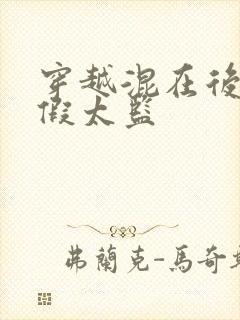 穿越混在後
假太監
弗蘭克-馬奇